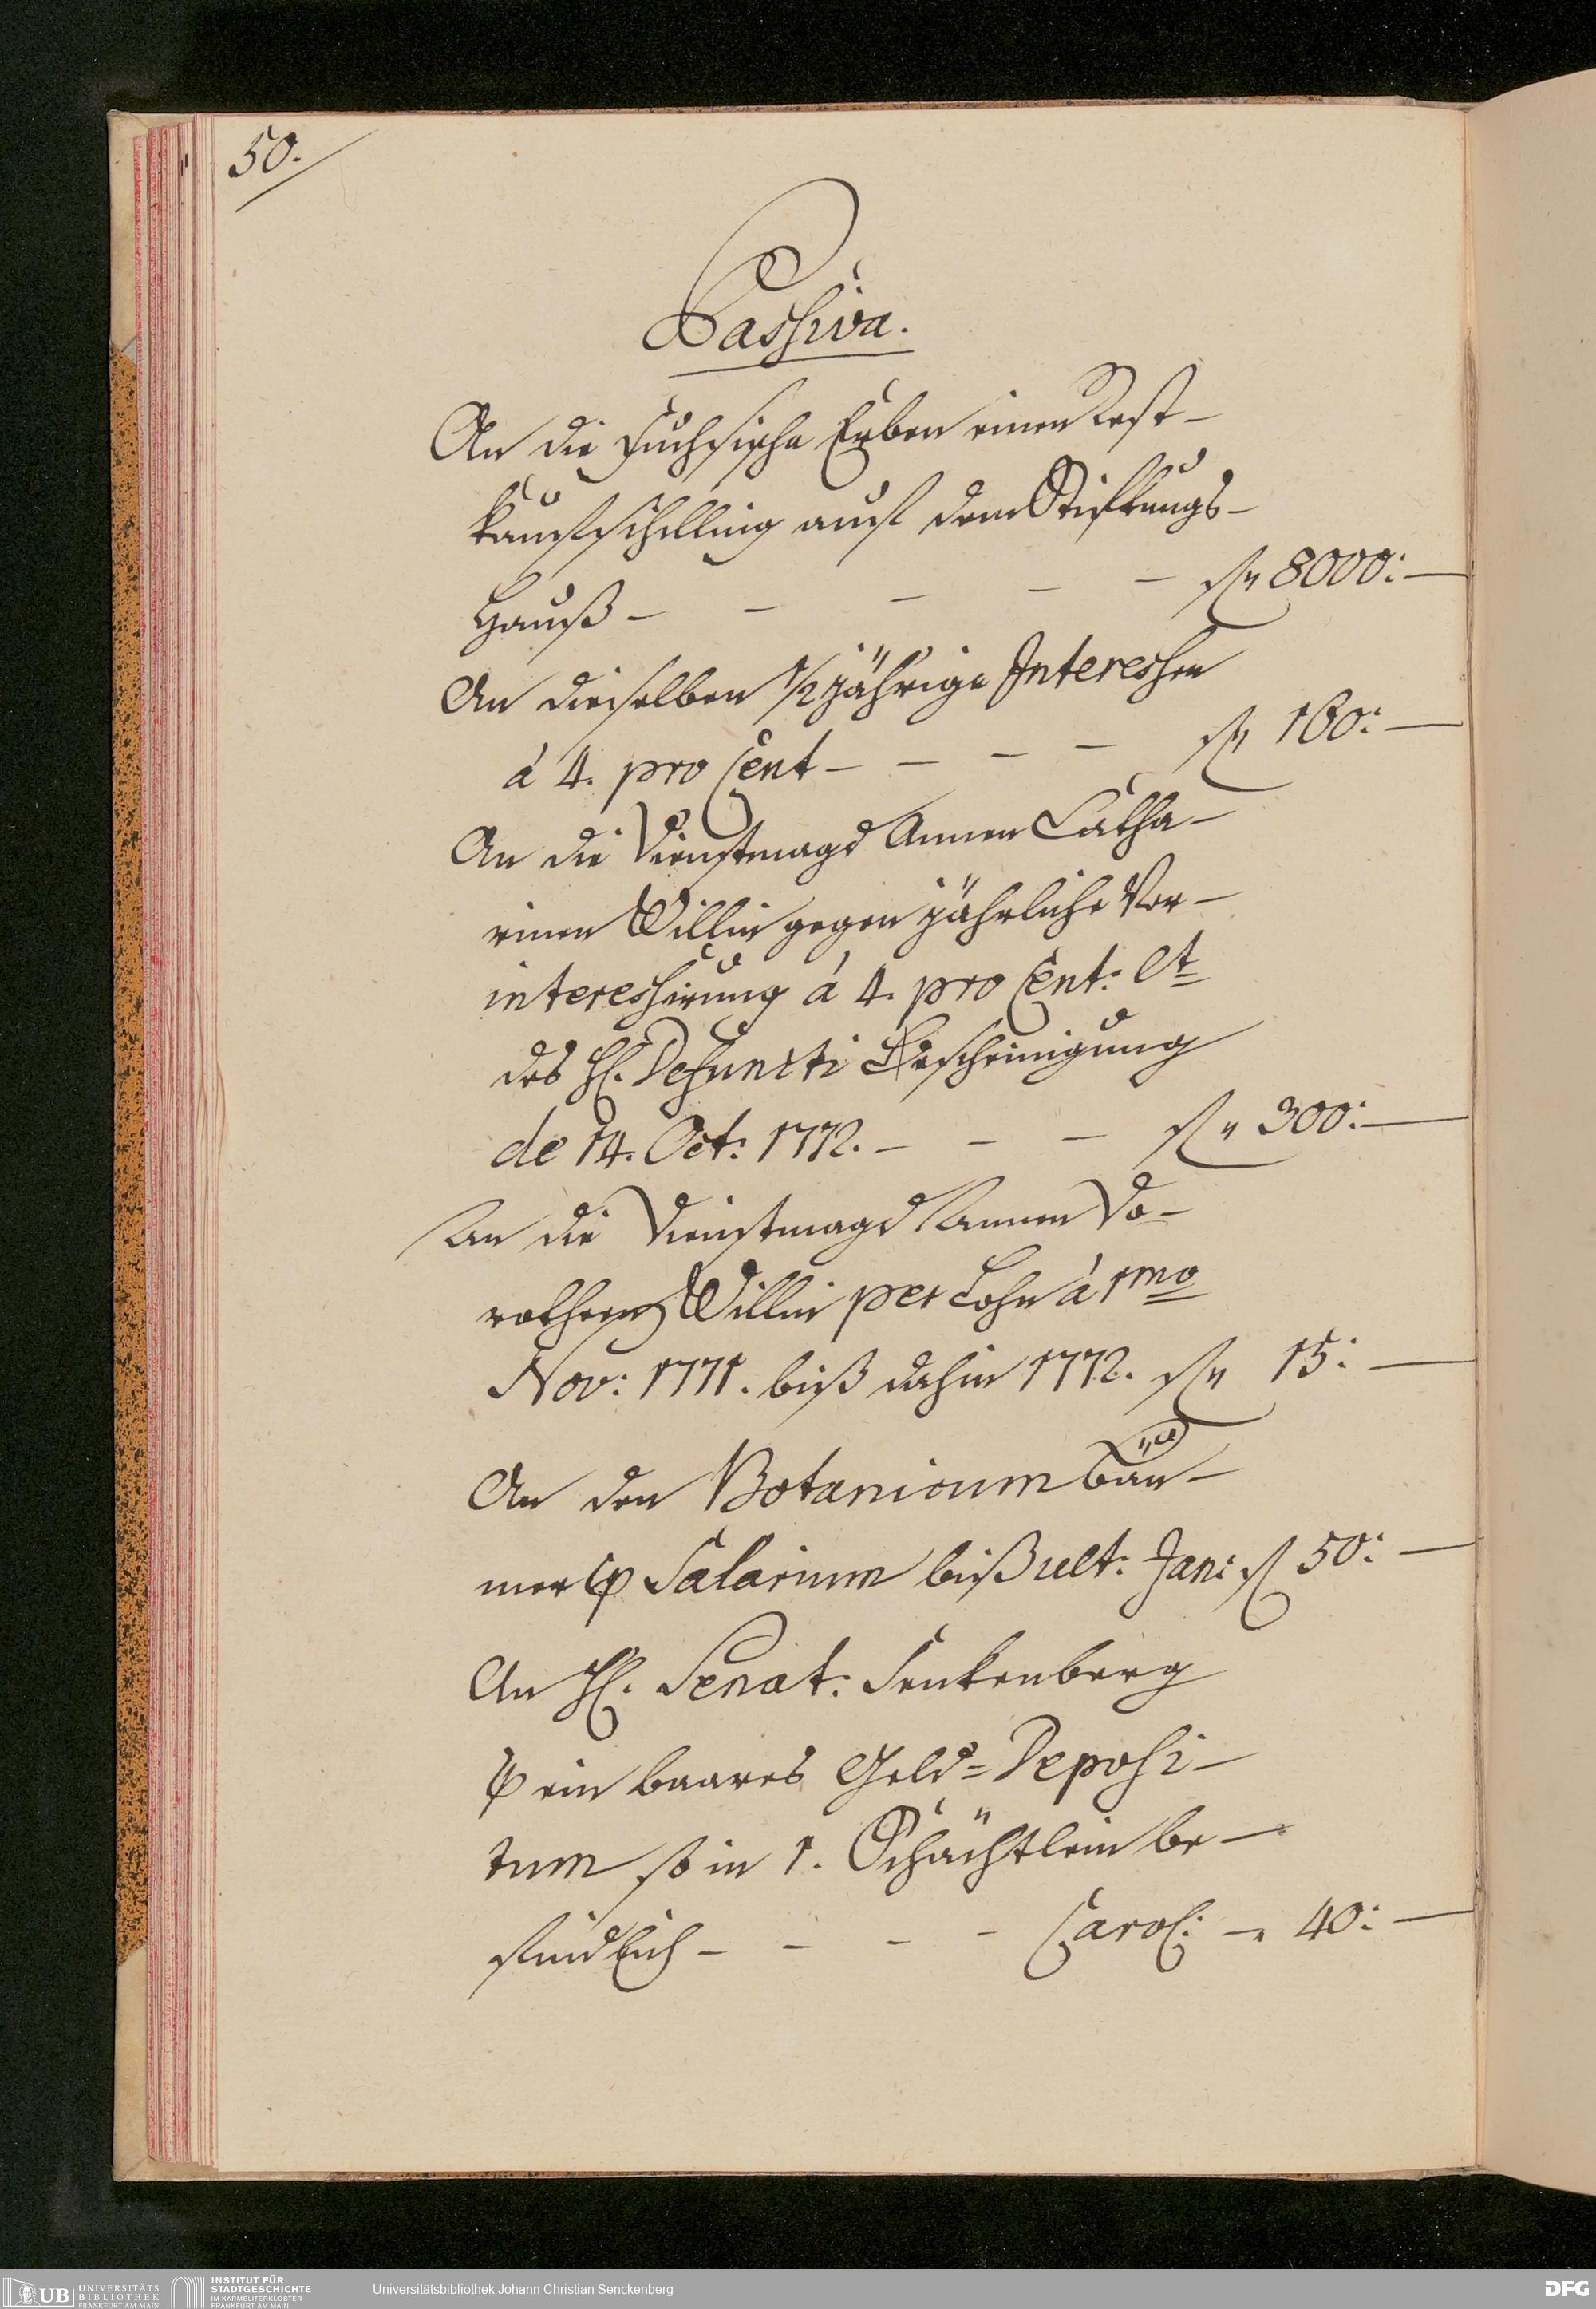 50.
Passiva.
An die Fuchsische Erben einen Rest-
kaufschilling auf dem Stiftungs-
Hauß - - - - - f" 8000:—
An dieselben 1/2 jährige Interessen
à 4. pro Cent - - - - f" 160:—
An die Dienstmagd Annen Catha-
rinen Willin gegen jährliche Ver-
interessirung à 4. pro Cent: lt
des H. Defuncti Bescheinigung
de 14. Oct: 1772. - - - f" 300:—
An die Dienstmagd Annen Do-
rotheen Willin per Lohn à 1mo
Nov: 1771. biß dahin 1772. f" 15:—
An den Botanicum Bäu-
mer Salarium biß ult: Jan: f 50:—
An H. Senat: Senkenberg
ein baares Geld=Deposi-
tum so in 1. Schächtlein be-
findlich - - - - Carol: - 40:—
UB UNIVERSITÄTS
BIBLIOTHEK
FRANKFURT AM MAIN
INSTITUT FÜR
STADTGESCHICHTE
IM KARMELITERKLOSTER
FRANKFURT AM MAIN
Universitätsbibliothek Johann Christian Senckenberg
DFG